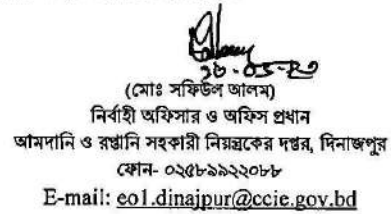 (মোঃ সফিউল আলম)
নির্বাহী অফিসার ও অফিস প্রধান
আমদানি ও রপ্তানি সহকারী নিয়ন্ত্রকের দপ্তর, দিনাজপুর
ফোন- ০২৫৮৯৯২২০৮৮
E-mail: eo1.dinajpur@ccie.gov.bd